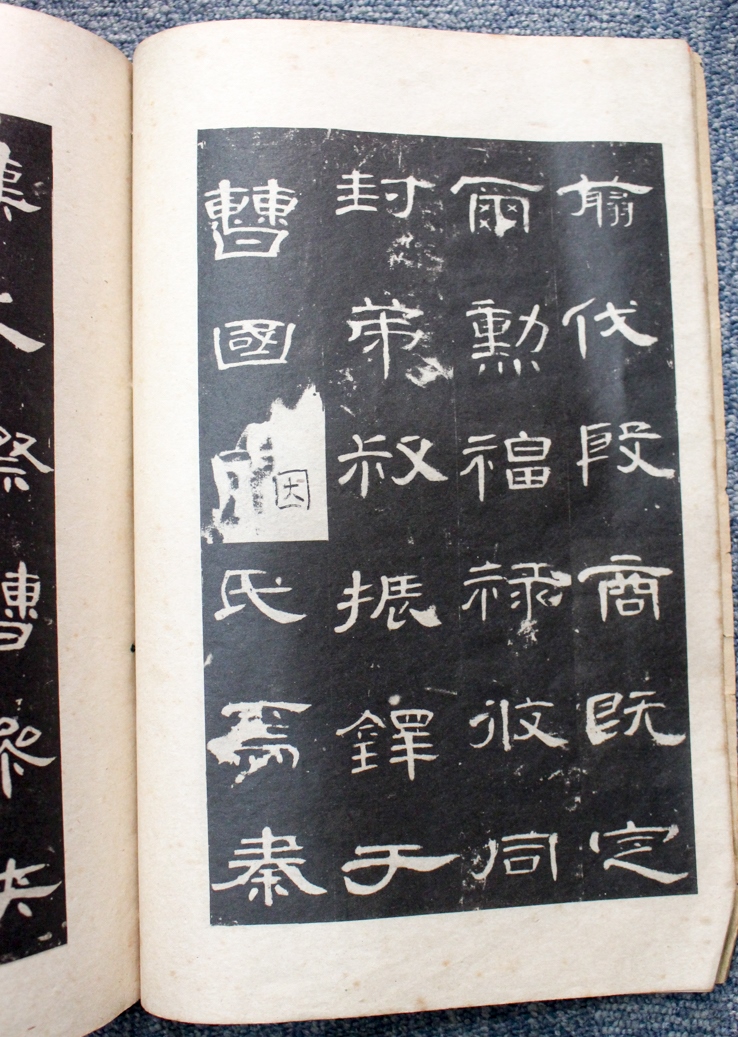 翦伐殷商既定
爾勳福祿攸同
封弟叔振鐸于
曹國因氏焉秦
漢之際曹參夾